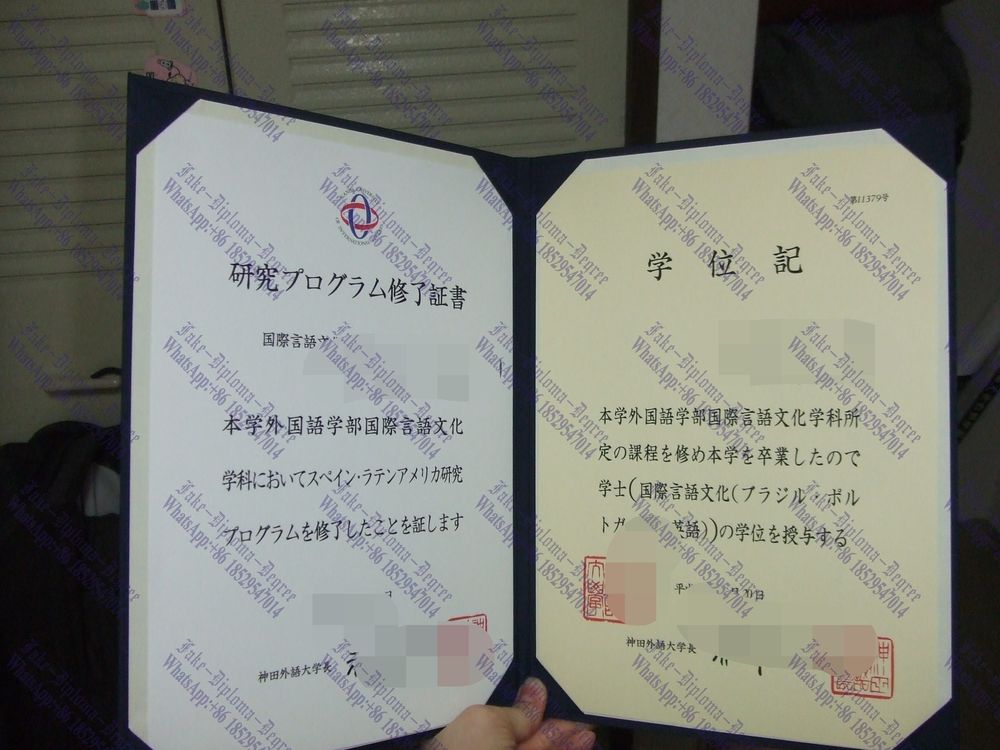 研究プログラム修了証書
国際言語文
本学外国語学部国際言語文化
学科においてスペイン・ラテンアメリカ研究
プログラムを修了したことを証します
日
神田外語大学長
第11379号
学位記
本学外国語学部国際言語文化学科所
定の課程を修め本学を卒業したので
学士(国際言語文化(ブラジル・ポル
トガ 英語))の学位を授与する
平 月20日
神田外語大学長
Fake-Diploma-Degree
WhatsApp:+86 18529547014